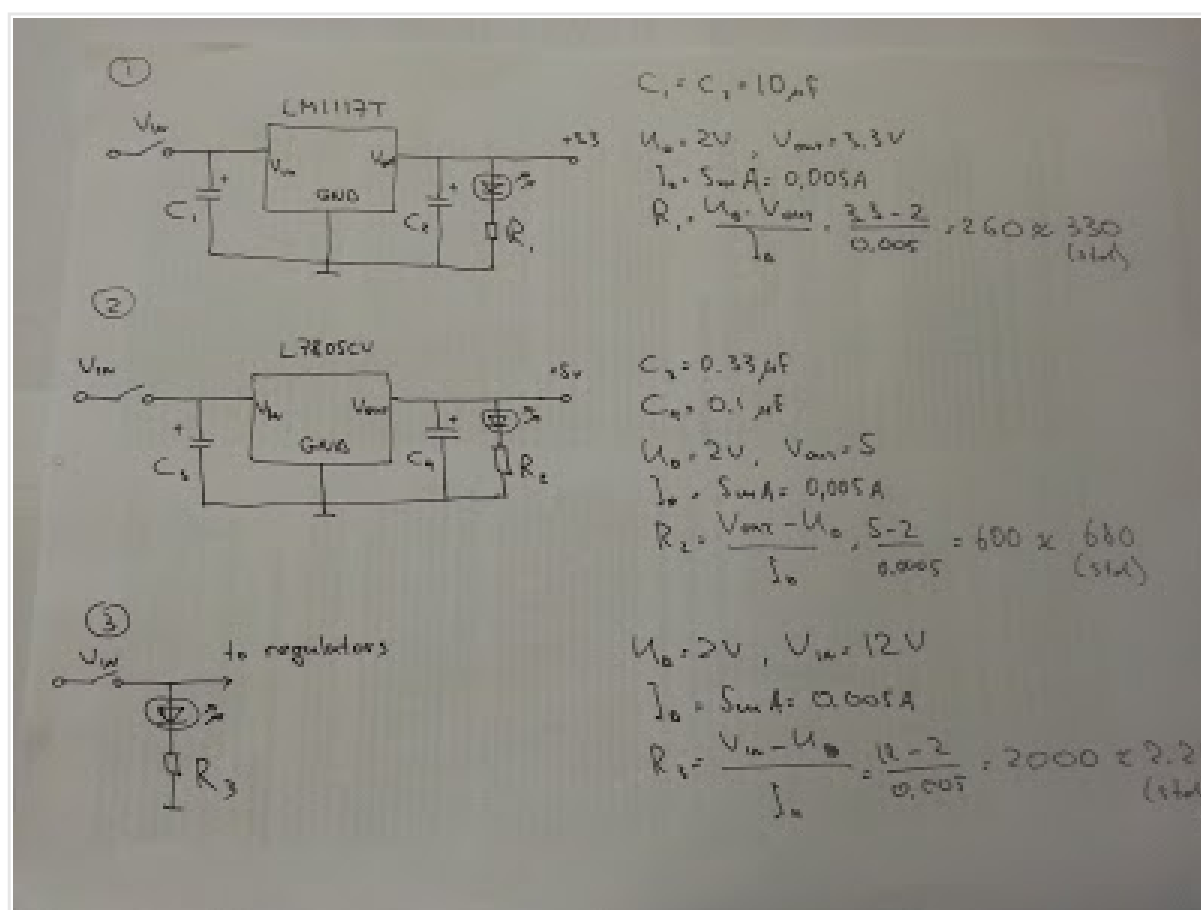 1
C₁ = C₂ = 10 µF
LM1117T
Vin
Vin
Vout
+3.3
GND
C₁
+
C₂
+
R₁
U = 2V, Vout = 3.3V
I = 5mA = 0,005A
R₁ = U - Vout / I = 3.3 - 2 / 0,005 = 260 ≈ 330
(std)
2
L7805CV
Vin
Vin
Vout
+5v
GND
+
C₃
+
C₄
R₂
= 0.33 µF
C₄ = 0.1 µF
U = 2V, Vout = 5
I = 5mA = 0,005A
R₂ = Vout - U / I = 5-2 / 0.0005 = 600 ≈ 680
(std)
3
Vin
to regulators
R₃
U = 2V, Vin = 12V
I = 5mA = 0.005A
R₃ = Vin - U / I = 12 - 2 / 0,005 = 2000 ≈ 2.2